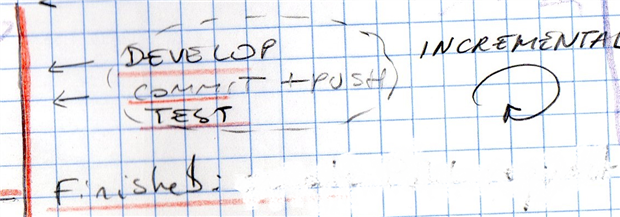 DEVELOP
COMMIT + PUSH
TEST
INCREMENTAL
Finished: